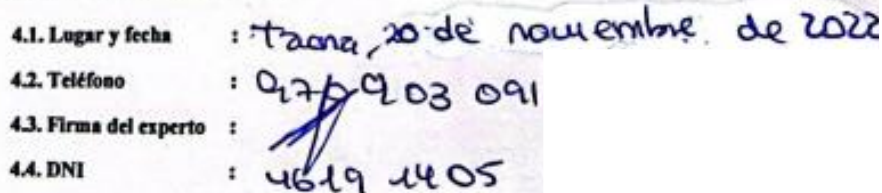 4.1. Lugar y fecha : Tacna, 20 de noviembre de 2022
4.2. Teléfono : 970 903 091
4.3. Firma del experto :
4.4. DNI : 4619 1405